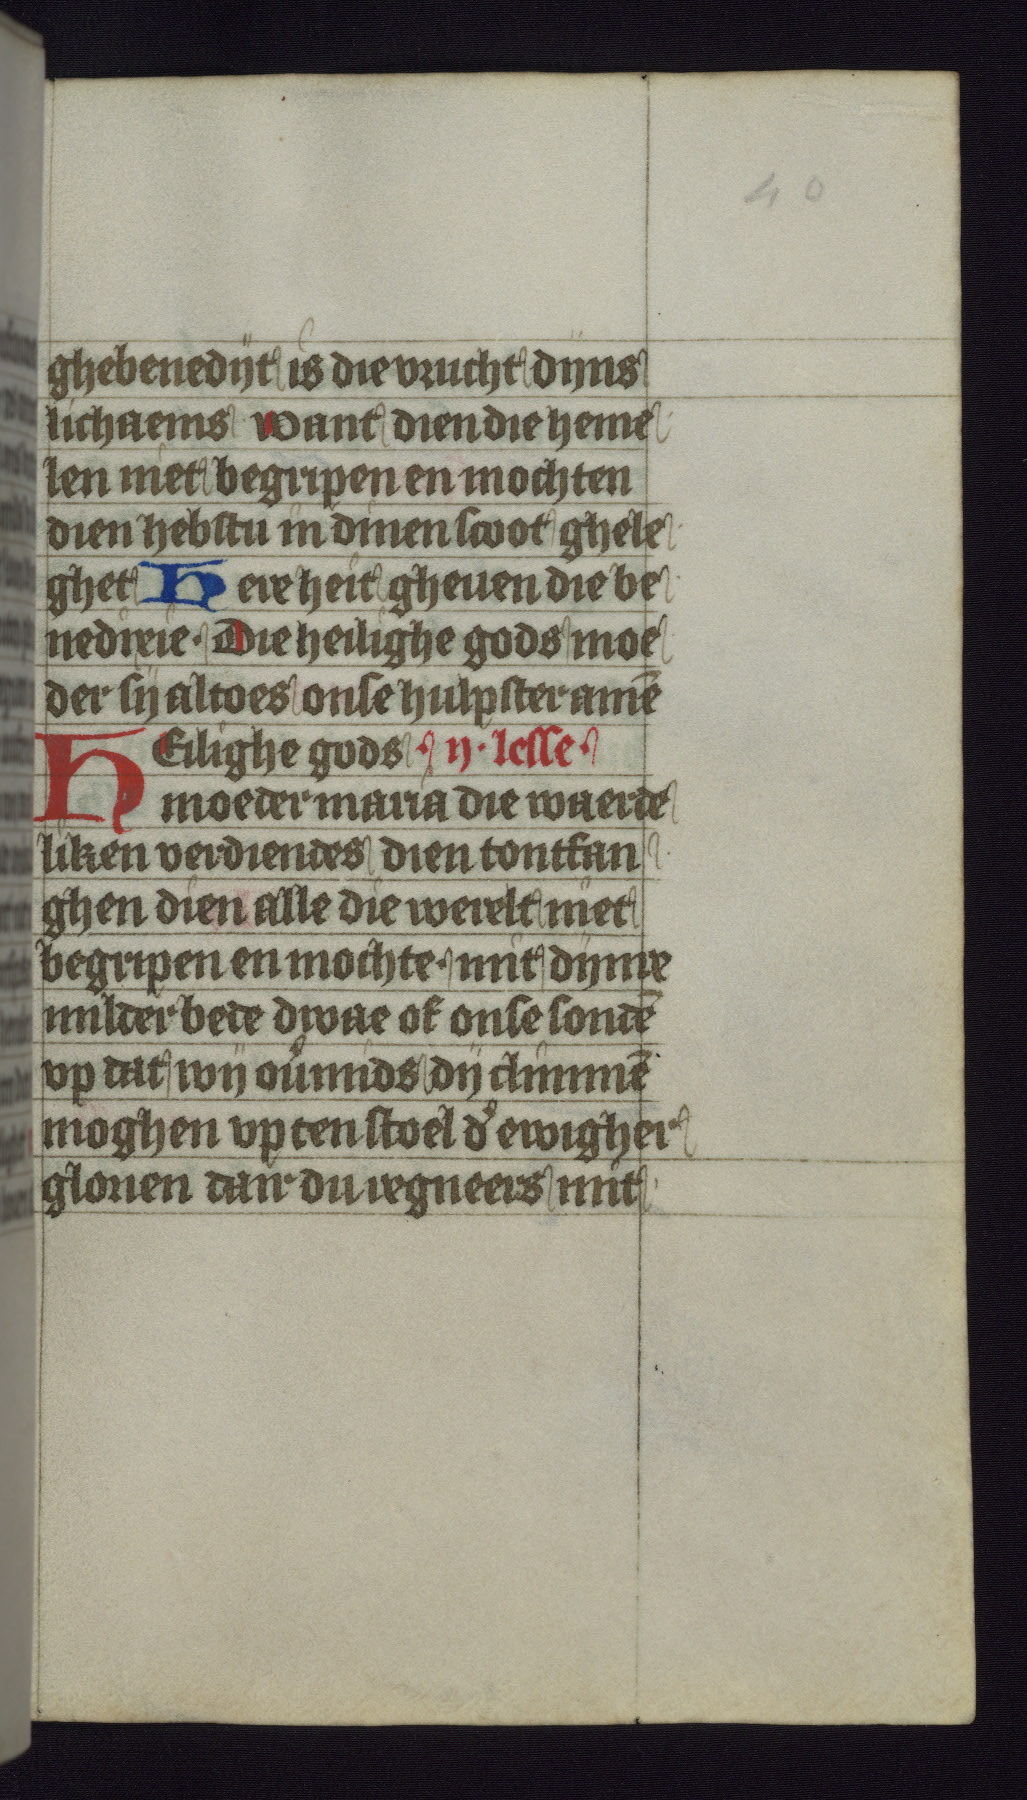 40
ghebenedijt is die vrucht dijns
lichaems want dien die heme
len niet begripen en mochten
dien hebstu in dinen scoot ghele
ghet Here heit gheuen die be
nedixie. Die heilighe gods moe
der sij altoes onse hulpster amē
HEilighe gods. ij. lesse.
moeder maria die waerde
liken verdiendes dien tontfan
ghen dien alle die werelt niet
begripen en mochte. mit dijnre
milder bede dwae of onse sondē
vp dat wij ou̾mids dij climmē
moghen vp ten stoel d̾ ewigher
glorien dair du regneers mit